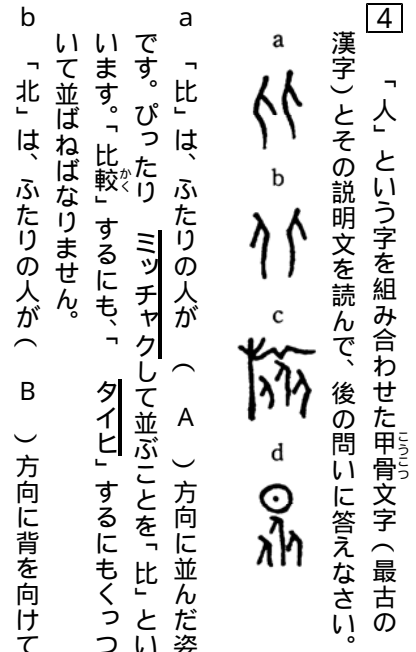 4 「人」という字を組み合わせた甲骨文字(最古の
漢字)とその説明文を読んで、後の問いに答えなさい。
a
b
c
d
a 「比」は、ふたりの人が ( A )方向に並んだ姿
です。ぴったり ミッチャクして並ぶことを「比」とい
います。「比較」するにも、「 タイヒ」するにもくっつ
いて並ばねばなりません。
b 「北」は、ふたりの人が( B )方向に背を向けて